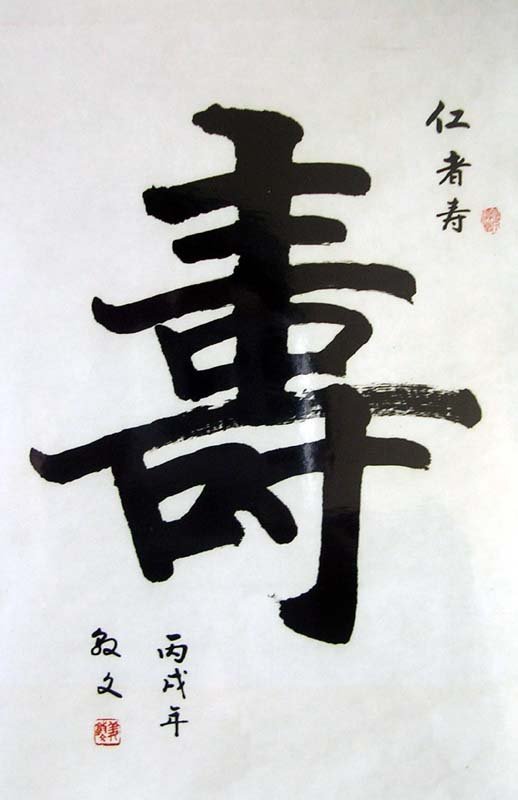 仁者寿
壽
丙戌年
敏文